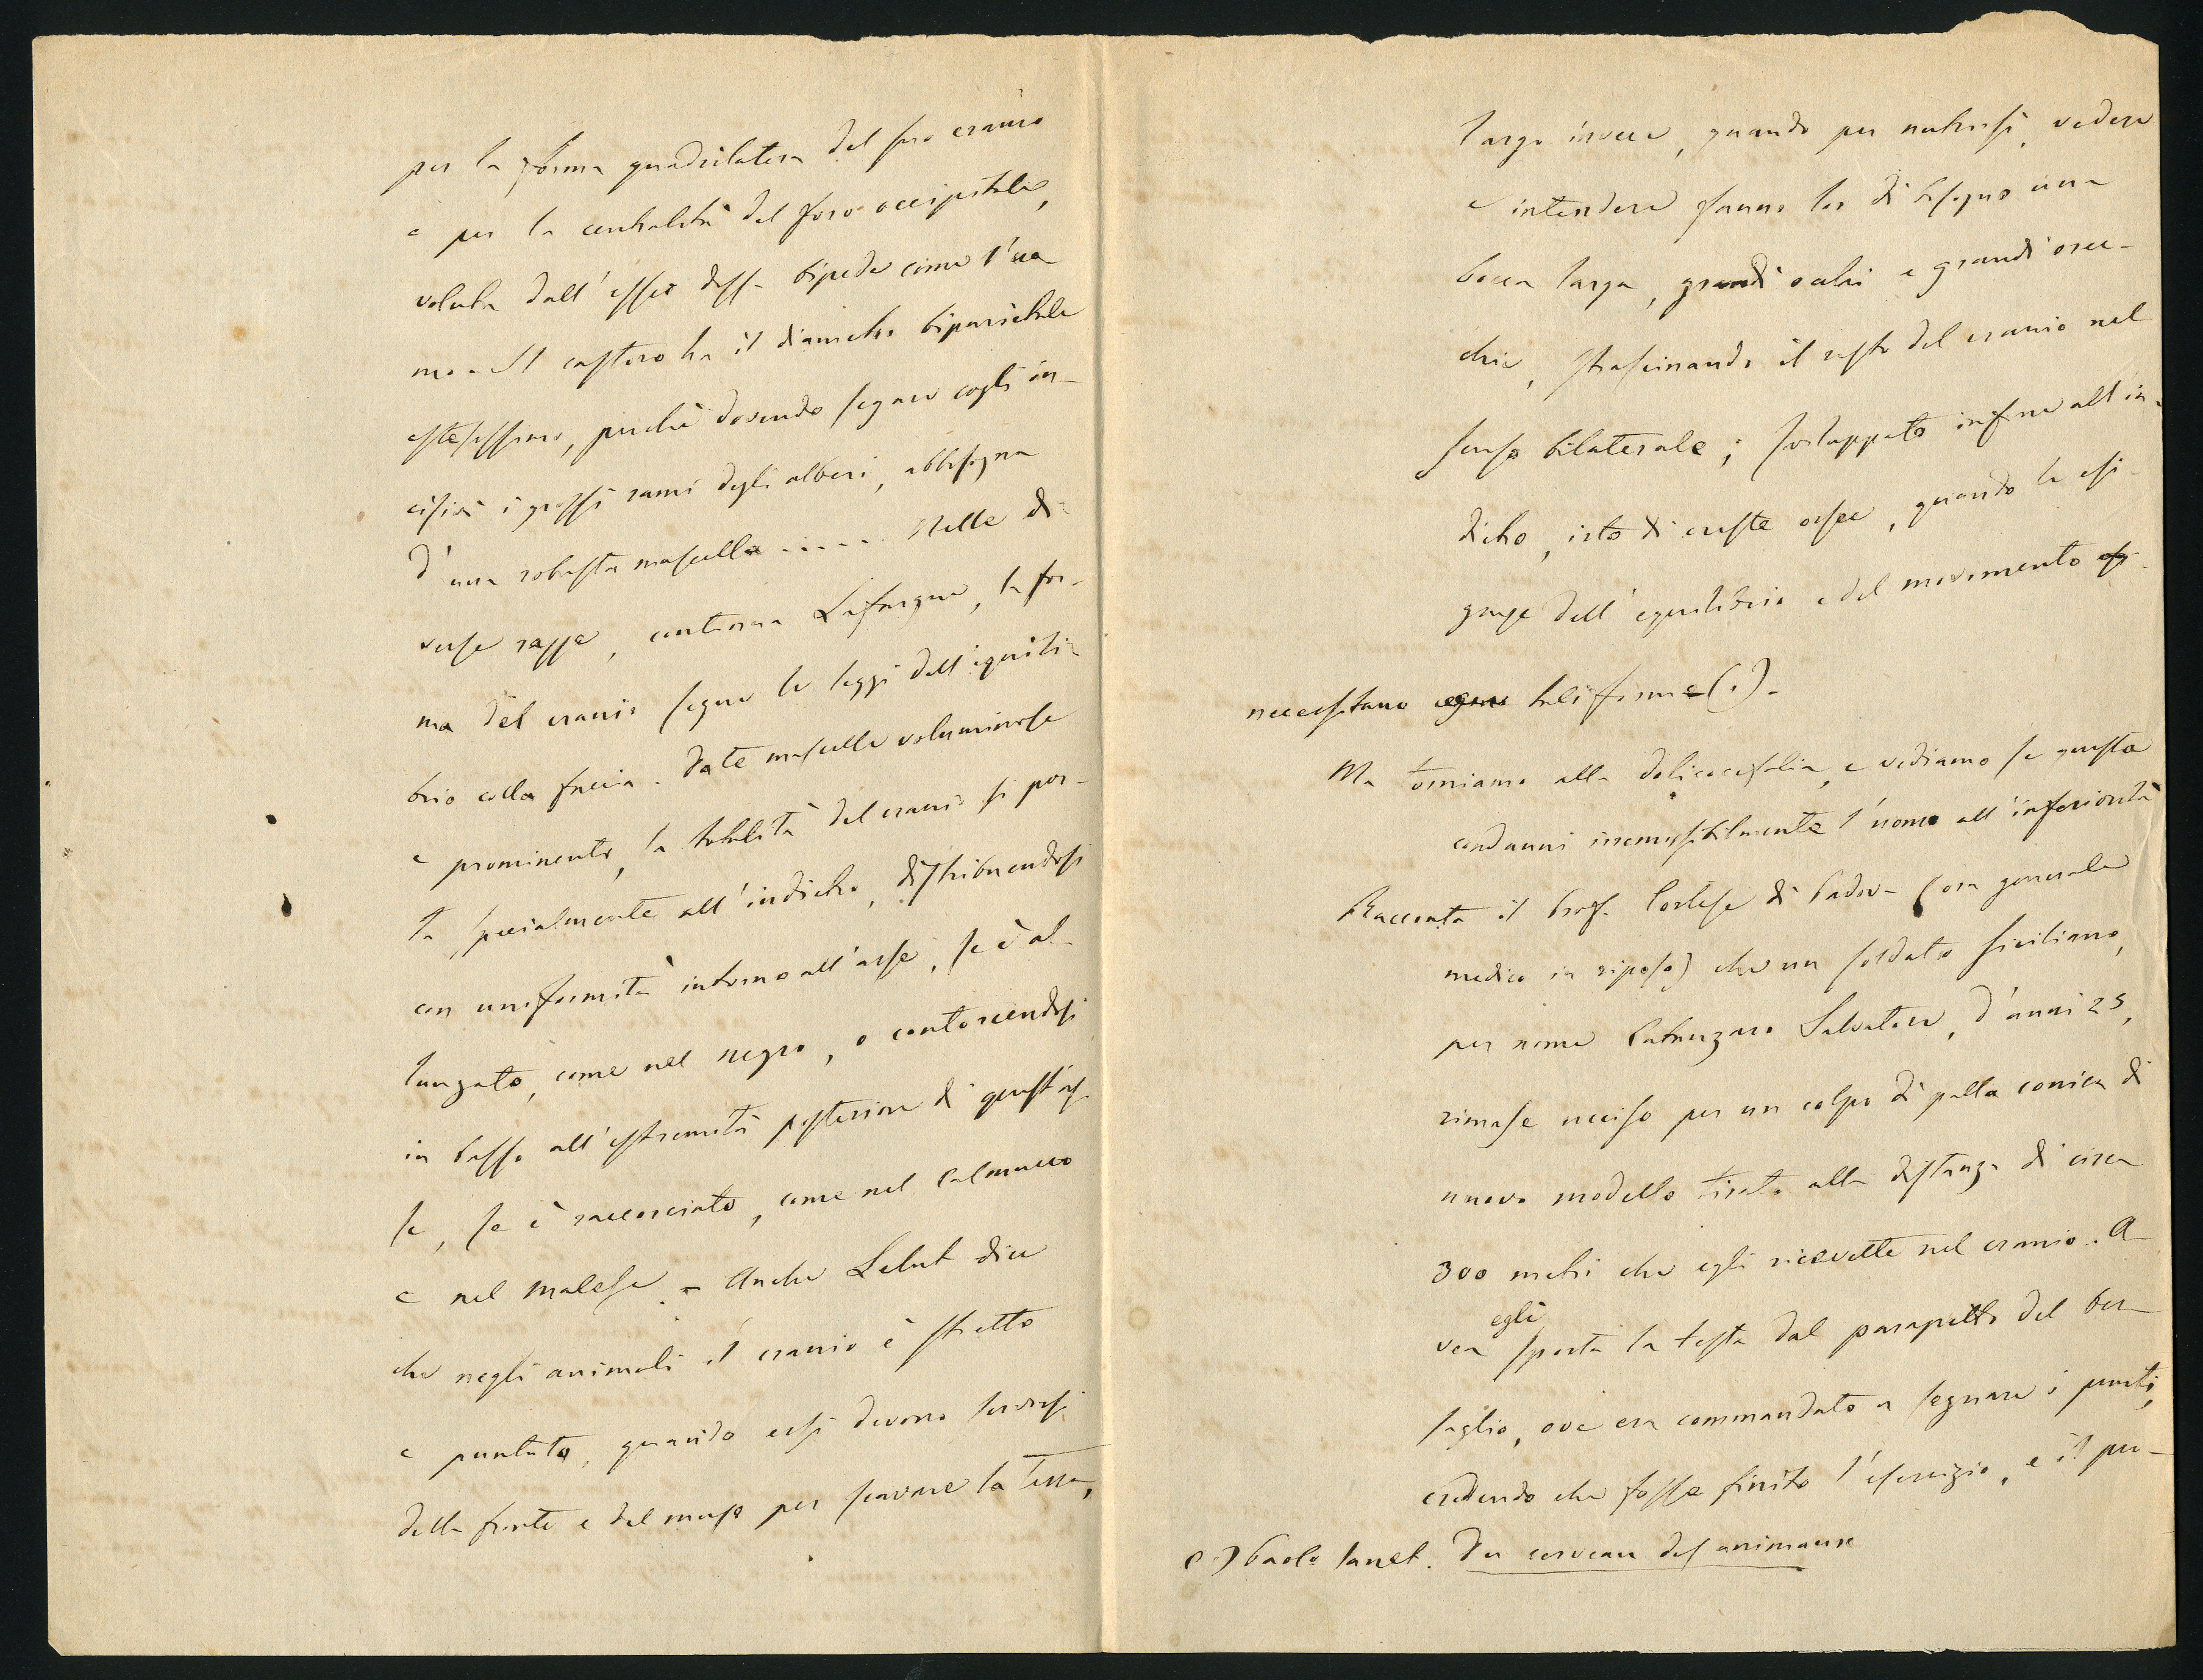 per la forma quadrilatera del suo cranio
e per la centralità del foro occipitale,
voluta dall'esser dessa bipede come l'uo
mo. Il castoro ha il diametro biparietale
estesissimo, perchè dovendo segare cogli in-
cisivi i grossi rami degli alberi, abbisogna
d'una robusta mascella ..... Nelle di-
verse razze, continua Lafargue, la for-
ma del cranio segue le leggi dell'equili-
brio colla faccia. Date mascelle voluminose
e prominenti, la totalità del cranio si por-
ta specialmente all'indietro, distribuendosi
con uniformità intorno all'asse, se è al-
lungato, come nel negro, o contorcendosi
in basso all'estremità posteriore di quest'as-
se, se è raccorciato, come nel Calmucco
e nel Malese. - Anche Lelut dice
che negli animali il cranio è stretto
e puntuto, quando essi devono servirsi
della fronte e del muso per scavare la terra,
largo invece, quando per nutrirsi, vedere
e intendere fanno lor di bisogno una
bocca larga, grandi occhi e grandi orec-
chie, strascinando il resto del cranio nel
senso bilaterale; sviluppato infine all'in-
dietro, irto di creste ossee, quando le esi-
genze dell'equilibrio e del movimento
necessitano tali forme (1).
Ma torniamo alla dolicocefalia, e vediamo se questa
condanni irremissibilmente l'uomo all'inferiorità
Racconta il Prof. Cortese di Padova (ora generale
medico in riposo) che un soldato siciliano,
per nome Salvatore, d'anni 25,
rimase ucciso per un colpo di palla conica di
nuovo modello tirato alla distanza di circa
300 metri che egli ricevette nel cranio. A-
egli
vea sporta la testa dal parapetto del ber-
saglio, ove era commandato a segnare i punti,
credendo che fosse finito l'esercizio, e il pro-
(1) Paolo Janet. Du cerveau des animaux